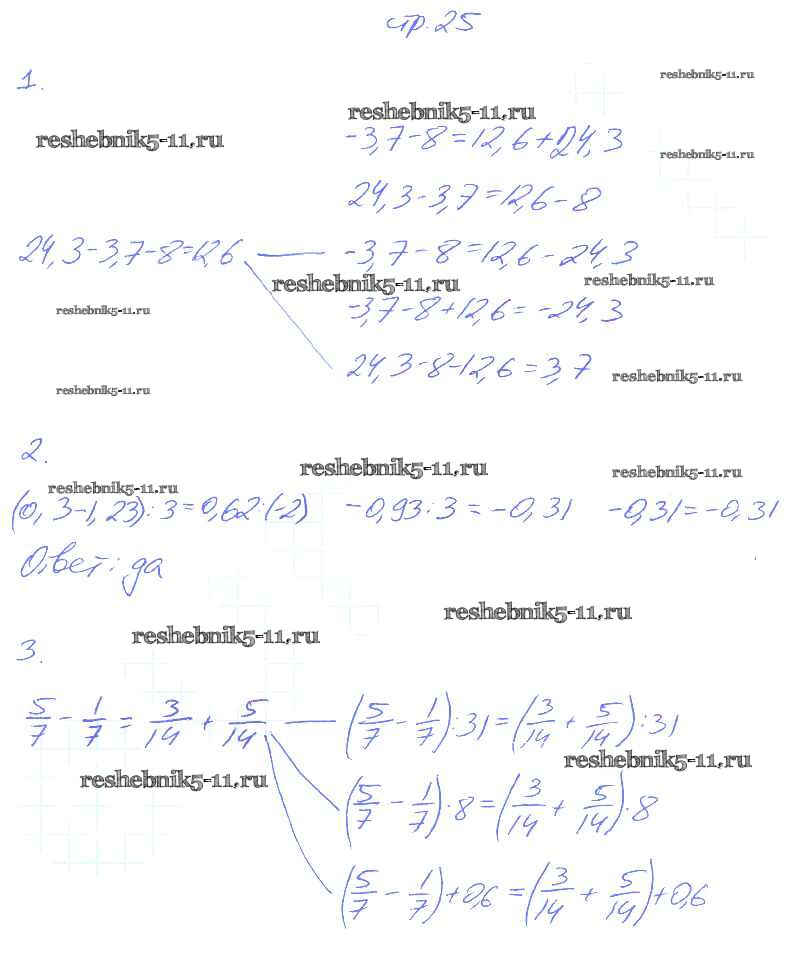 стр. 25
1.
reshebnik5-11.ru
reshebnik5-11.ru
reshebnik5-11.ru
-3,7-8=12,6+24,3
reshebnik5-11.ru
24,3-3,7=12,6-8
24,3-3,7-8=12,6 — -3,7-8=12,6-24,3
reshebnik5-11.ru
reshebnik5-11.ru
reshebnik5-11.ru
-3,7-8+12,6=-24,3
24,3-8-12,6=3,7
reshebnik5-11.ru
reshebnik5-11.ru
2.
reshebnik5-11.ru
reshebnik5-11.ru
reshebnik5-11.ru
(0,3-1,23):3=0,62·(-2) -0,93:3=-0,31 -0,31=-0,31
Ответ: да
reshebnik5-11.ru
reshebnik5-11.ru
3.
5/7 - 1/7 = 3/14 + 5/14 — (5/7 - 1/7):31=(3/14 + 5/14):31
reshebnik5-11.ru
reshebnik5-11.ru
(5/7 - 1/7)·8=(3/14 + 5/14)·8
(5/7 - 1/7)+0,6=(3/14 + 5/14)+0,6